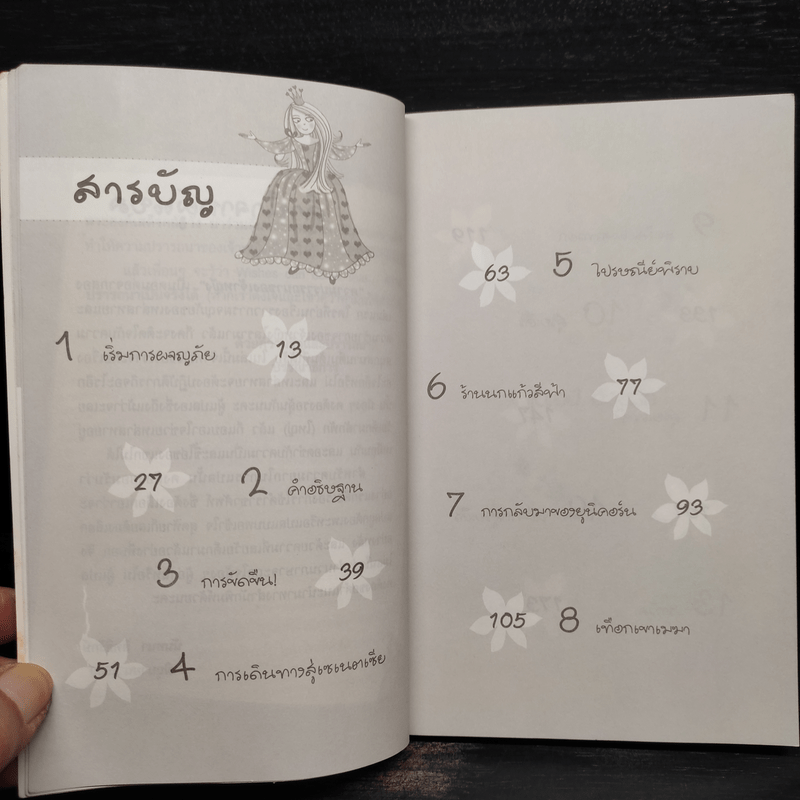 สารบัญ
1 เริ่มการผจญภัย 13
27 2 คำอธิษฐาน
3 การขัดขืน! 39
51 4 การเดินทางสู่เซเนอาเซีย
63 5 ไปรษณีย์พิราบ
6 ร้านนกแก้วสีฟ้า 77
7 การกลับมาของยูนิคอร์น 93
105 8 เทือกเขาเมฆา